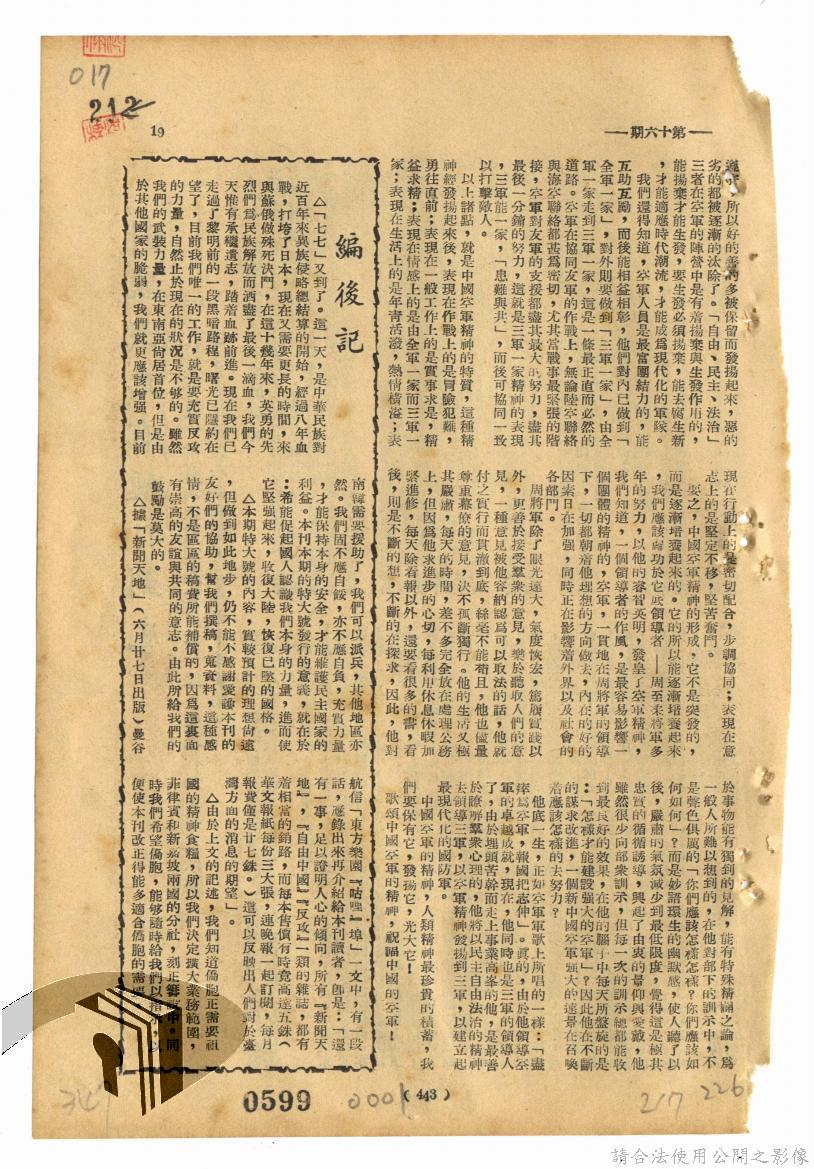 —第十六期—
19
017
212
，所以好的善的多被保留而發揚起來，惡的
劣的都被逐漸的汰除了。「自由、民主、法治」
三者在空軍的陣營中是有着揚棄與生發作用的，
能揚棄才能生發，要生發必須揚棄，能去腐生新
，才能適應時代潮流，才能成爲現代化的軍隊。
我們還得知道，空軍人員是最富團結力的，能
互助互勵，而後能相益相彰，他們對內已做到「
全軍一家」，對外則要做到「三軍一家」，由全
軍一家走到三軍一家，這是一條最正直而必然的
道路。空軍在協同友軍的作戰上，無論陸空聯絡
與海空聯絡都甚爲密切，尤其當戰事最緊張的階
接，空軍對友軍的支援都盡其最大的努力，盡其
最後一分鐘的努力，這就是三軍一家精神的表現
，三軍能一家，「患難與共」，而後可協同一致
以打擊敵人。
以上諸點，就是中國空軍精神的特質，這種精
神經發揚起來後，表現在作戰上的是冒險犯難，
勇往直前；表現在一般工作上的是實事求是，精
益求精；表現在情感上的是由全軍一家而三軍一
家；表現在生活上的是年青活潑，熱情橫溢；表
現在行動上的是密切配合，步調協同；表現在意
志上的是堅定不移，堅苦奮鬥。
要之，中國空軍精神的形成，它不是突發的，
而是逐漸培養起來的。它的所以能逐漸培養起來
，我們應該歸功於它底領導者——周至柔將軍多
年的努力，以他的睿智英明，發皇了空軍精神，
我們知道，一個領導者的作風，是最容易影響一
個團體的精神的，空軍，一貫地在周將軍的領導
下，一切都朝着他理想的方向做去，內在的好的
因素日在加强，同時正在影響着外界以及社會的
各部門。
周將軍除了眼光遠大，氣度恢宏，篤履實踐以
外，更善於接受羣衆的意見，樂於聽取人們的意
見，一種意見被他容納認爲可以取法的話，他就
付之實行而貫澈到底，絲毫不能苟且，他也儘量
尊重幕僚的意見，決不孤斷獨行。他的生活又極
其嚴肅，每天的時間，差不多完全放在處理公務
上，但因爲他求進步的心切，每利用休息休暇加
緊進修，每天除看報以外，還要看很多的書，看
後，則是不斷的想，不斷的在探求，因此，他對
於事物能有獨到的見解，能有特殊精闢之論，爲
一般人所難以想到的，在他對部下的訓示中，不
是聲色俱厲的「你們應該怎樣怎樣？你們應該如
何如何」？而是妙語環生的幽默感，使人聽了以
後，嚴肅的氣氛減少到最低限度，覺得這是極其
忠實的循循誘導，興起了由衷的景仰與愛戴，他
雖然很少向部衆訓示，但每一次的訓示總都能收
到最良好的效果，在他的腦子中每天所盤旋的是
：「怎樣才能建設強大的空軍」？因此他在不斷
的謀求改進，一個新中國空軍强大的遠景在召喚
着應該怎樣的去努力？
他底一生，正如空軍軍歌上所唱的一樣：「盡
瘁爲空軍，報國把志伸」。眞的，由於他領導空
軍的卓越成就，現在，他同時也是三軍的領導人
了，由於埋頭苦幹而走上事業高峯的他，是最善
於瞭解羣衆心理的，他將以民主自由法治的精神
去領導三軍，以空軍精神發揚到三軍，以建立起
最現代化的國防軍。
中國空軍的精神，人類精神最珍貴的積蓄，我
們要保有它，發揚它，光大它！
歌頌中國空軍的精神，祝福中國的空軍！
編後記
△「七七」又到了。這一天，是中華民族對
近百年來異族侵略總結算的開始，經過八年血
戰，打垮了日本，現在又需要更長的時間，來
與蘇俄做殊死決鬥，在這十幾年來，英勇的先
烈們爲民族解放而洒盡了最後一滴血，我們今
天惟有承繼遺志，踏着血跡前進。現在我們已
走過了黎明前的一段黑暗路程，曙光已隱約在
望了，目前我們唯一的工作，就是要充實反攻
的力量，自然止於現在的狀況是不够的。雖然
我們的武裝力量，在東南亞尙居首位，但是由
於其他國家的脆弱，我們就更應該增强。目前
南韓需要援助了，我們可以派兵，其他地區亦
然。我們固不應自餒，亦不應自負，充實力量
，才能保持本身的安全，才能維護民主國家的
利益。本刊本期的特大號發行的意義，就在於
：希能促起國人認識我們本身的力量，進而使
它堅强起來，收復大陸，恢復已墜的國格。
△本期特大號的內容，實較預計的理想尙遠
，但做到如此地步，仍不能不感謝愛護本刊的
友好們的協助，幫我們撰稿，蒐資料，這種感
情，不是區區的稿費所能補償的，因爲這裏面
有崇高的友誼與共同的意志。由此所給我們的
鼓勵是莫大的。
△據「新聞天地」（六月廿七日出版）曼谷
航信「東方樂園『咕哩』埠」一文中，有一段
話，應錄出來再介紹給本刊讀者，卽是：「還
有一事，足以證明人心的傾向，所有『新聞天
地』，『自由中國』『反攻』一類的雜誌，都有
着相當的銷路，而每本售價有時竟高達五銖（
華文報紙每份三大張，連晚報一起訂閱，每月
報費僅是廿七銖。）這可以反映出人們對於臺
灣方面的消息的期望」。
△由於上文的記述，我們知道僑胞正需要祖
國的精神食糧，所以我們決定擴大業務範圍，
菲律賓和新嘉坡兩國的分社，刻正籌 中。同
時我們希望僑胞，能够隨時給我們以指示，以
便使本刊改正得能多適合僑胞的需
（443）
0599
0001
347
217
226
請合法使用公開之影像